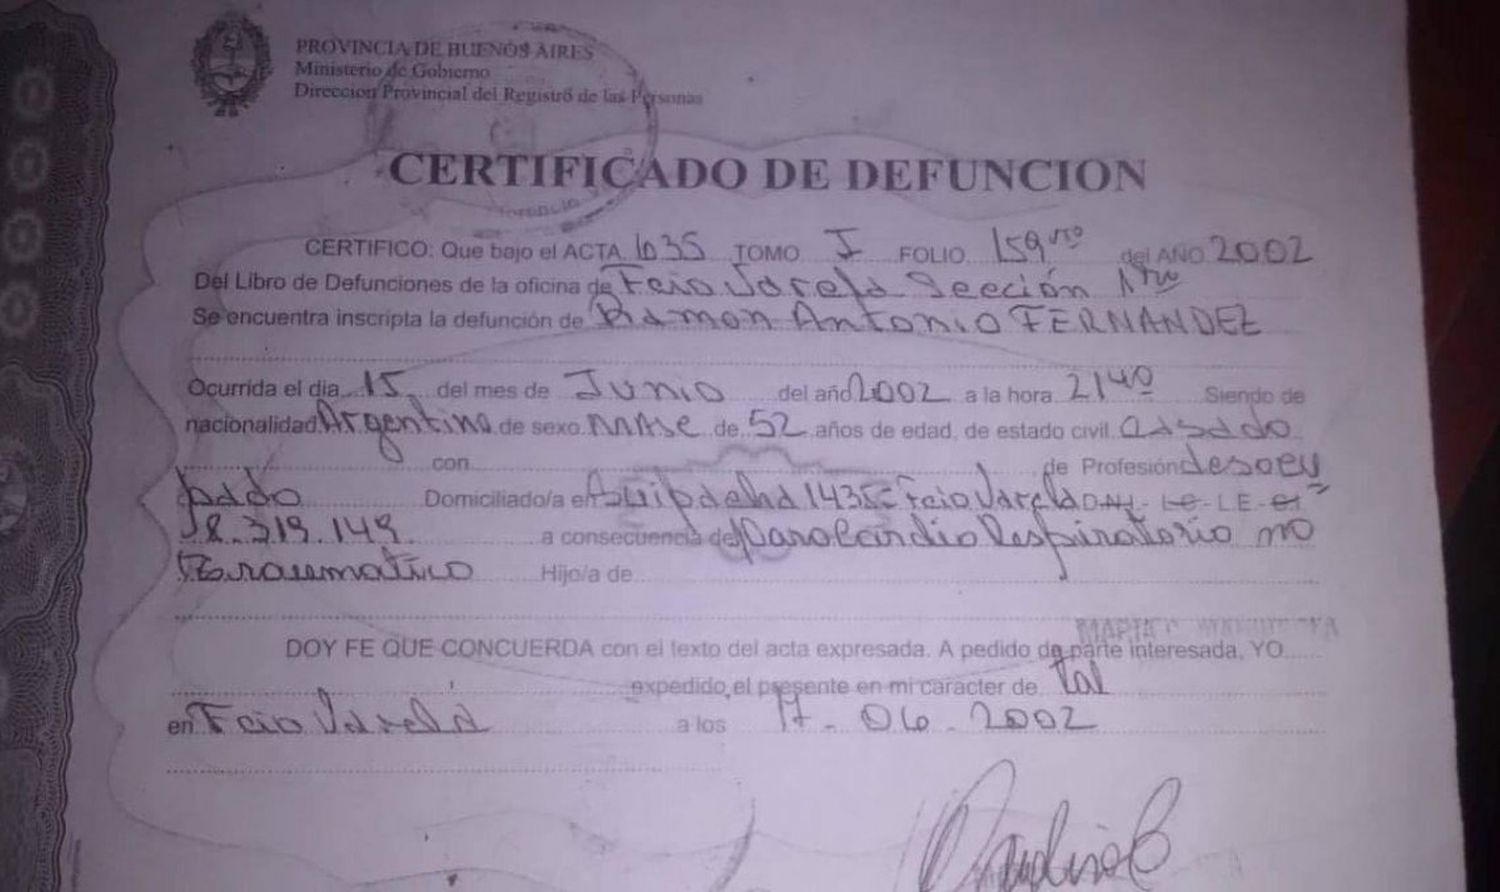 PROVINCIA DE BUENOS AIRES
Ministerio de Gobierno
Direccion Provincial del Registro de las Personas
CERTIFICADO DE DEFUNCION
CERTIFICO: Que bajo el ACTA 1035 TOMO I FOLIO 159 vto del AÑO 2002
Del Libro de Defunciones de la oficina de Fcio Varela Sección 1ra
Se encuentra inscripta la defunción de Ramon Antonio FERNANDEZ
Ocurrida el dia 15 del mes de Junio del año 2002 a la hora 2140 Siendo de
nacionalidad Argentina de sexo Masc de 52 años de edad, de estado civil casado
con de Profesión desocu
pado Domiciliado/a en 1435 Fcio Varela DNI - LC - LE - CI
8.319.149 a consecuencia de Paro Cardio Respiratorio no
Traumatico Hijo/a de
DOY FE QUE CONCUERDA con el texto del acta expresada. A pedido de parte interesada, YO
expedido el presente en mi caracter de tal
en Fcio Varela a los 17 - 06 - 2002